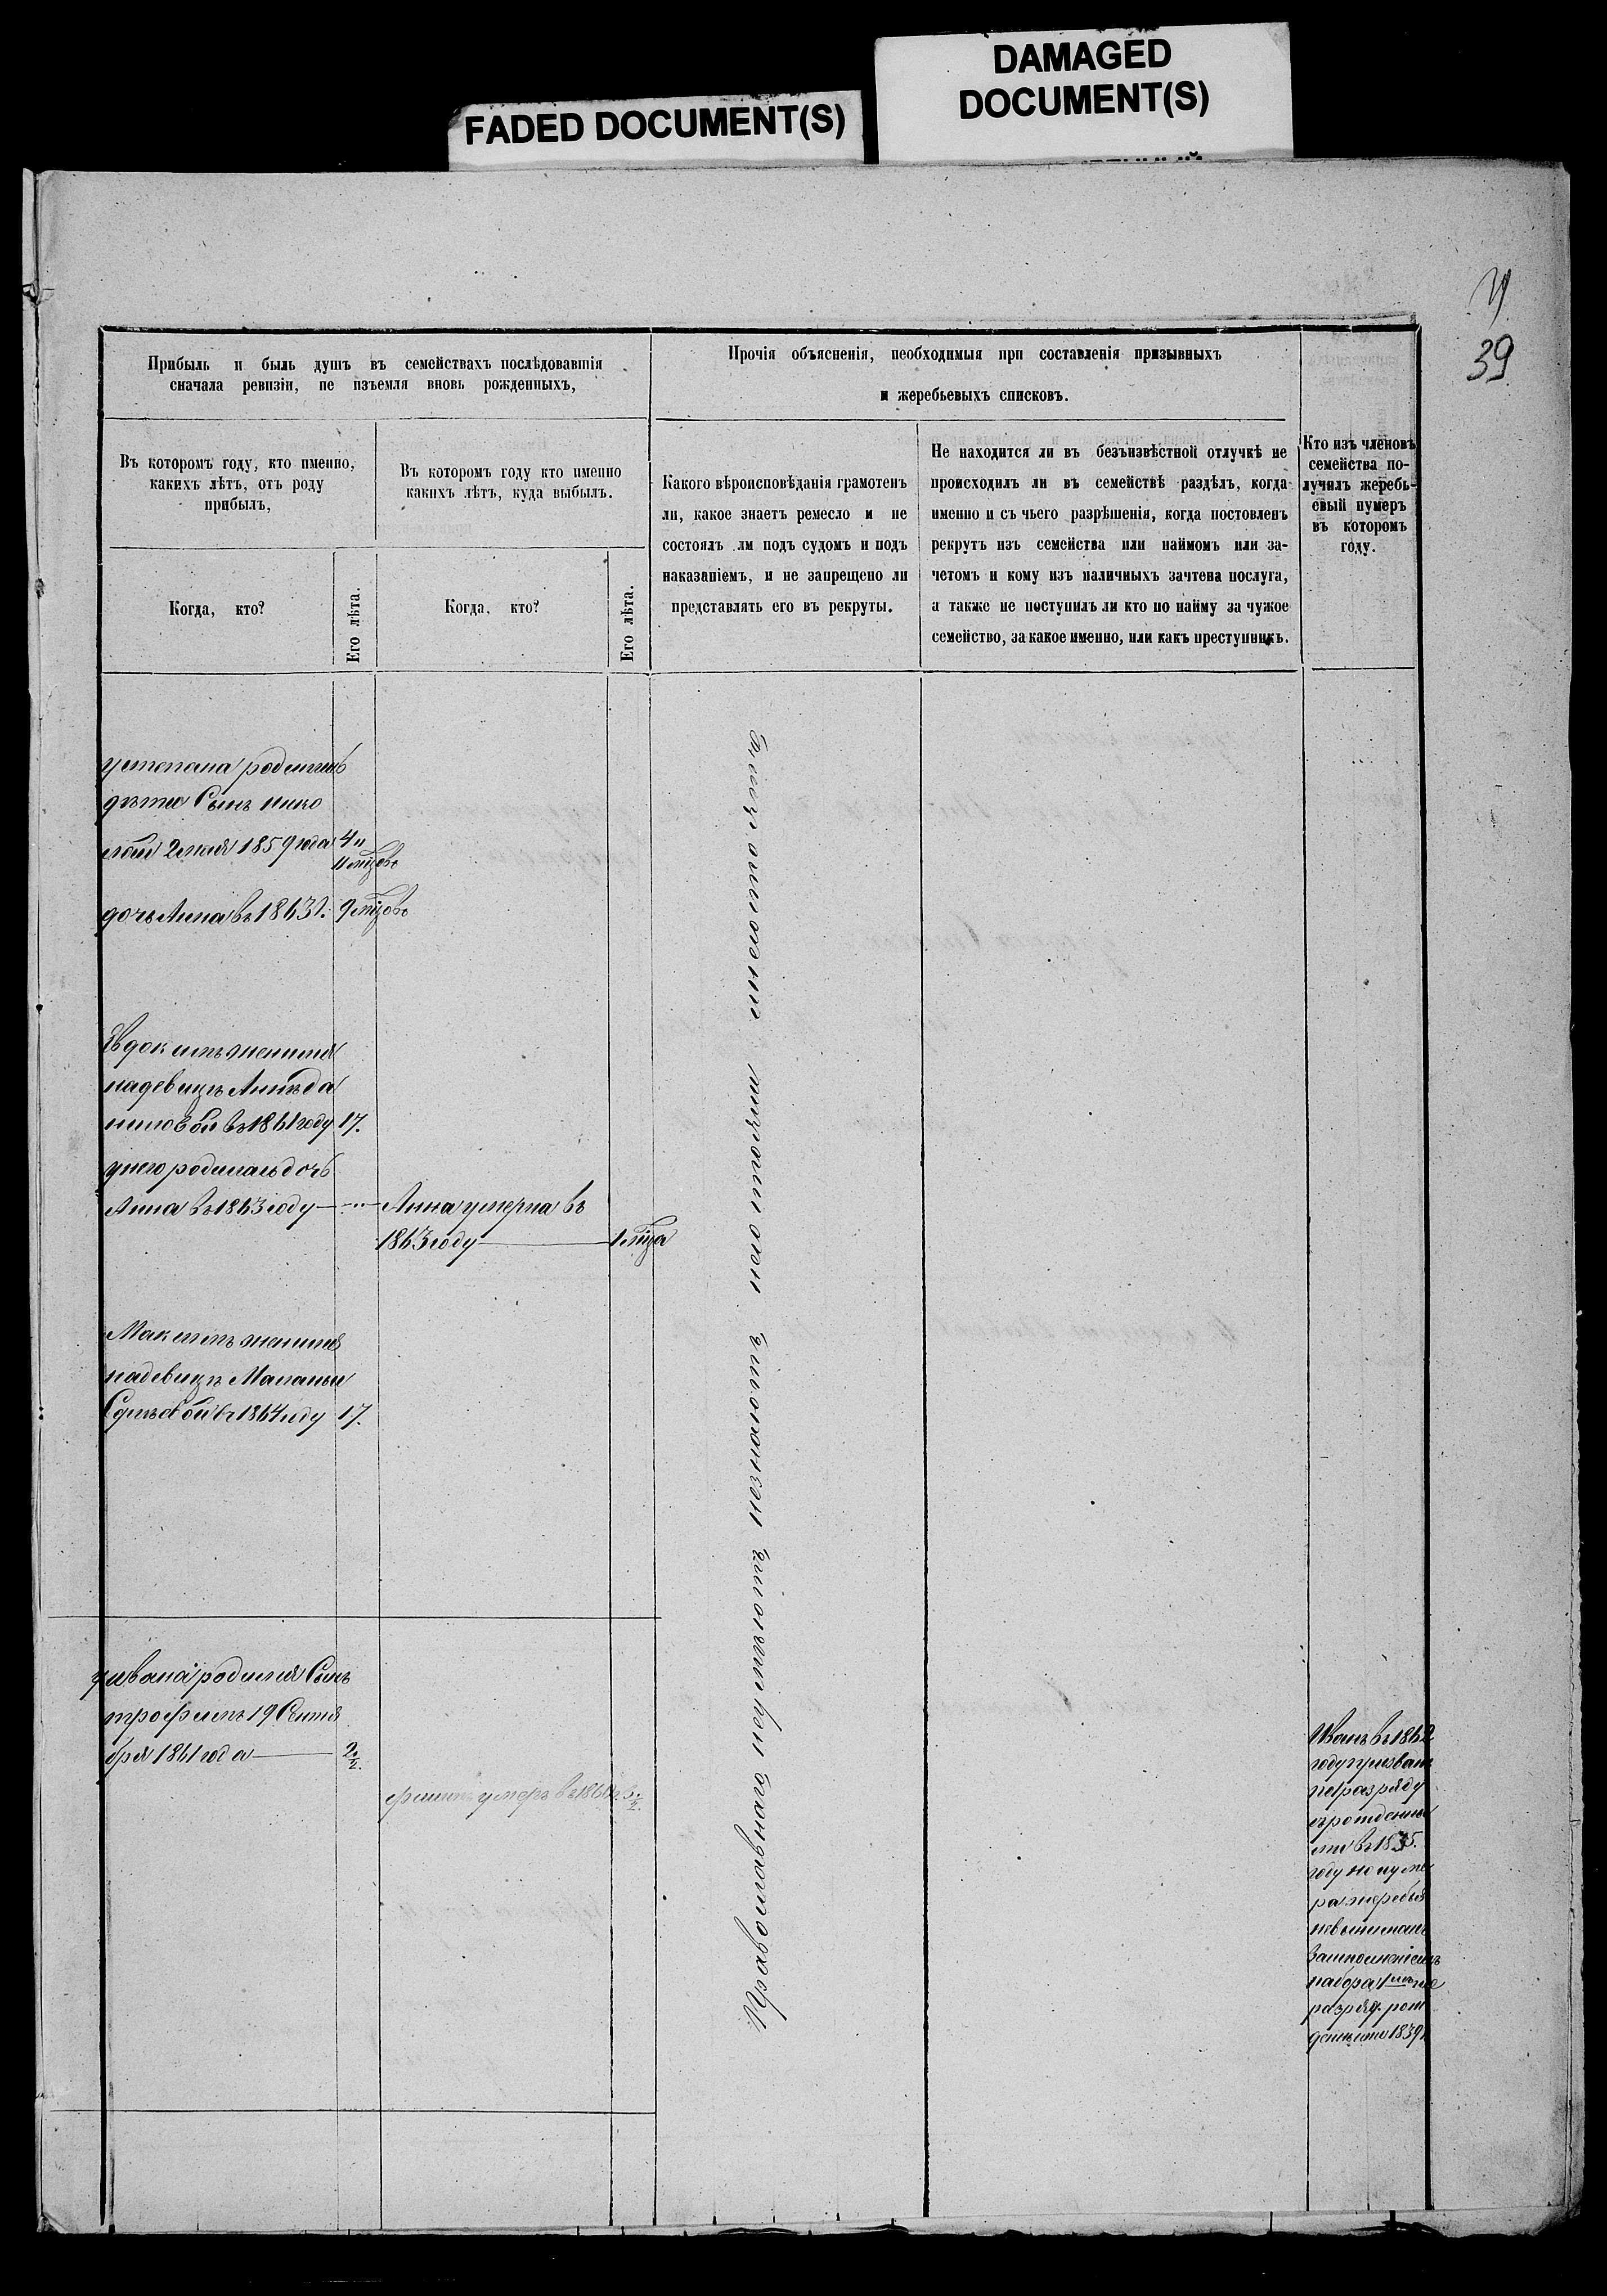 FADED DOCUMENT(S)
DAMAGED
DOCUMENT(S)
39
Прибыль и быль душъ въ семействахъ послѣдовавшія
сначала ревизіи, не изъемля вновь рожденныхъ,
Прочія объясненія, необходимыя при составленія призывныхъ
и жеребьевыхъ списковъ.
Въ которомъ году, кто именно,
какихъ лѣтъ, отъ роду
прибылъ,
Въ которомъ году кто именно
какихъ лѣтъ, куда выбылъ.
Какого вѣроисповѣданія грамотенъ
ли, какое знаетъ ремесло и не
состоялъ ли подъ судомъ и подъ
наказаніемъ, и не запрещено ли
представлять его въ рекруты.
Не находится ли въ безъизвѣстной отлучкѣ не
происходилъ ли въ семействѣ раздѣлъ, когда
именно и съ чьего разрѣшенія, когда постовленъ
рекрутъ изъ семейства или наймомъ или за-
четомъ и кому изъ наличныхъ зачтена послуга,
а также не поступилъ ли кто по найму за чужое
семейство, за какое именно, или какъ преступникъ.
Кто изъ членовъ
семейства по-
лучилъ жеребь-
евый нумеръ
въ которомъ
году.
Когда, кто?
Его лѣта.
Когда, кто?
Его лѣта.
устепана родились
дѣти Сынъ нико
лай 2 мая 1859 года 4 и
11 мцовъ
дочь Анна въ 1863 г. 9 мцовъ
Евдокимъ женился
надевицѣ Аннѣ да
ниловой въ 1861 году 17.
унего родилась дочь
Анна въ 1863 году
Анна умерла въ
1863 году 1 мца
Максимъ женился
надевицѣ Маланьи
въ 1864 году 17.
уивана родился Сынъ
трофимъ 19 Сентя
бря 1861 года 2 1/2.
умеръ въ
Православнаго неумѣютъ незнаютъ несостоятъ
Иванъ въ 1862
году призванъ
разряду
въ 1835.
году но нуме
ра жеребья
невынималъ
набора
разряд. рож
1839